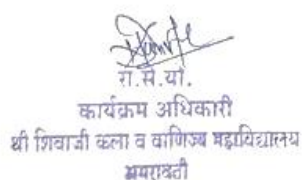 रा. से. यो.
कार्यक्रम अधिकारी
श्री शिवाजी कला व वाणिज्य महाविद्यालय
अमरावती